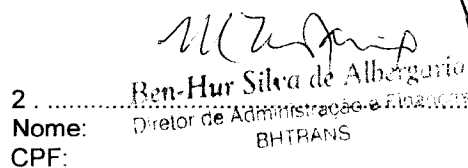 Ben-Hur Silva de Albergaria
2. ........ Diretor de Administração e Finanças
Nome: BHTRANS
CPF: